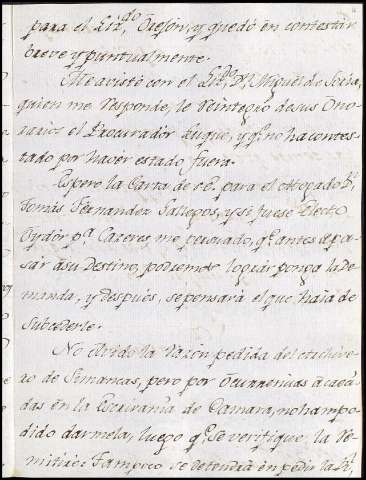 para el Liz.do Orejón, y quedó en contestar
breve y puntualmente.
Me avisté con el Liz.do Dn. Miguel de Soria,
quien me responde, le reintegró de sus Ono-
rarios el Procurador Luque, y qe. no ha contes-
tado por haver estado fuera.
Espero la Carta de para el Dn.
Tomás Fernandez Gallegos, y si fuese Electo
Oydor pa. Cazeres me persuado, qe. antes de pa-
sar á su Destino, podremos lograr ponga la De-
manda, y después, se pensará el que haia de
subcederle.
No olvido la razón pedida del Archive-
ro de Simancas, pero por ócurrencias ácaeci-
das en la Escrivanía de Camara, no han po-
dido darmela, luego qe. se verifique, la re-
mitiré: Tampoco se detendrá en pedir la Rl.